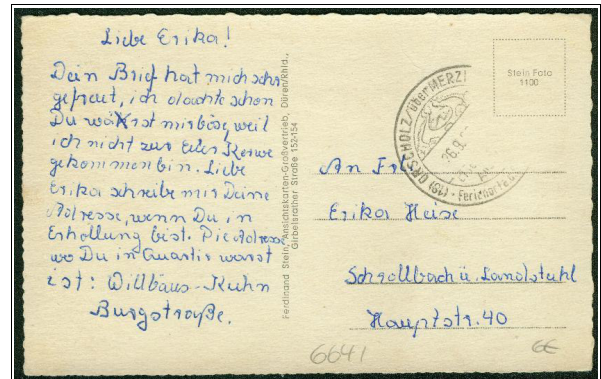 Liebe Erika!
Dein Brief hat mich sehr
gefreut, ich dachte schon
Du wärst mir böse, weil
ich nicht zur Euer Kerwe
gekommen bin. Liebe
Erika schreibe mir Deine
Adresse, wenn Du in
Erhollung bist. Die Adresse
wo Du in Quartir warst
ist: Willbäus-Kuhn
Burgstraße.
Ferdinand Stein, Ansichtskarten-Großvertrieb, Düren/Rhld.,
Girbelsrather Straße 152-154
Stein Foto
1100
ORSCHOLZ/über MERZI
An Fr
Erika Heise
Schrollbach ü. Landstuhl
Hauptstr. 40
6641
6€